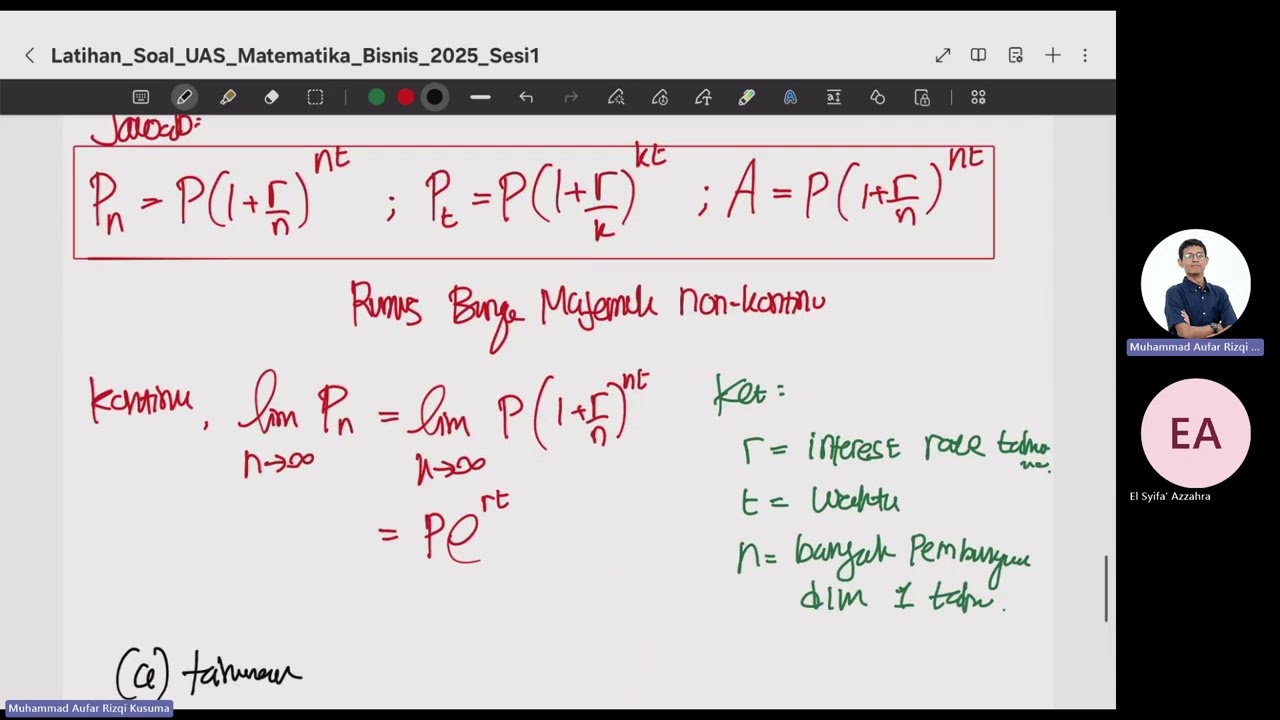 Latihan_Soal_UAS_Matematika_Bisnis_2025_Sesi1
Jawab:
Pₙ = P(1+r/n)^nt ; Pₜ = P(1+r/k)^kt ; A = P(1+r/n)^nt
Rumus Bunga Majemuk non-kontinu
Kontinu, lim n→∞ Pₙ = lim n→∞ P(1+r/n)^nt
= Pe^rt
Ket:
r = interest rate tahunan.
t = waktu
n = banyak Pembungaan
dlm 1 tahun.
(a) tahunan
Muhammad Aufar Rizqi ...
EA
El Syifa' Azzahra
Muhammad Aufar Rizqi Kusuma